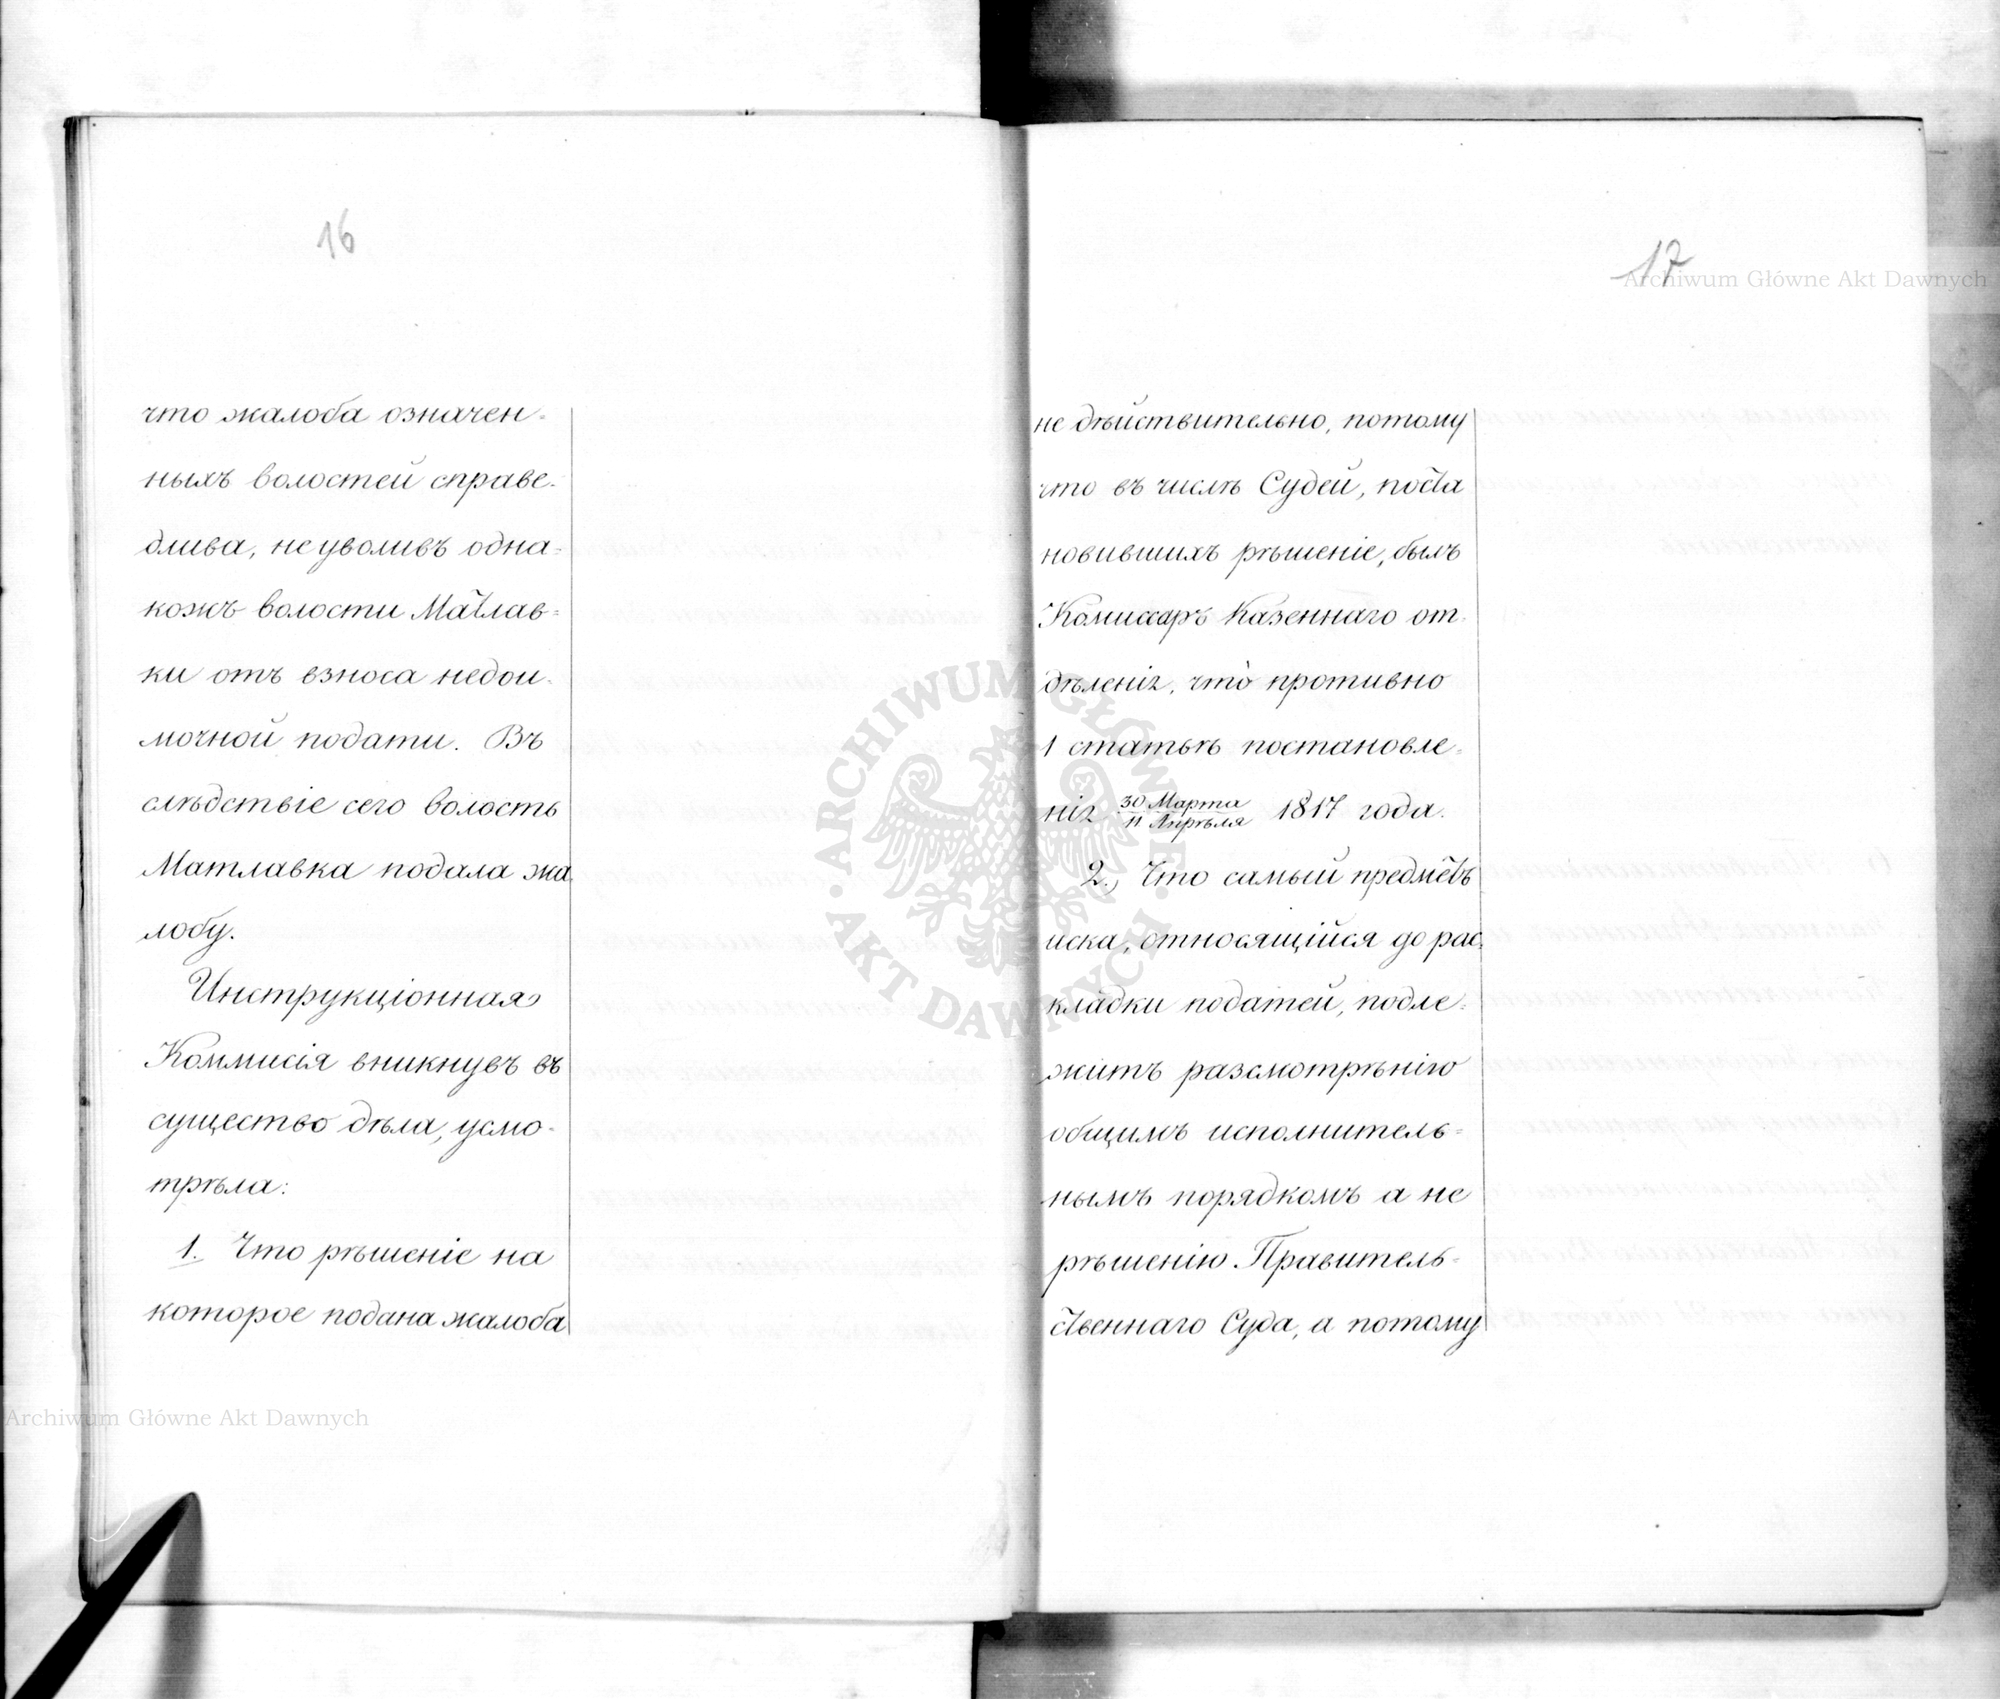 16
что жалоба означен-
ныхъ волостей справе-
длива, не уволивъ одна-
кожъ волости Матлав-
ки отъ взноса недои-
мочной подати. Въ
слѣдствіе сего волость
Матлавка подала жа-
лобу.
Инструкціонная
Коммисія вникнувъ въ
существо дѣла, усмо-
трѣла:
1. Что рѣшеніе на
которое подана жалоба
17
не дѣйствительно, потому
что въ числѣ Судей, поста
новившихъ рѣшеніе, былъ
Комиссаръ Казеннаго от-
дѣленія, что противно
1 статьѣ постановле-
нія 30 Марта / 11 Апрѣля 1817 года.
2., Что самый предметъ
иска, относящійся до рас-
кладки податей, подле-
житъ разсмотрѣнію
общимъ исполнитель-
нымъ порядкомъ а не
рѣшенію Правитель-
ственнаго Суда, а потому
Archiwum Główne Akt Dawnych
ARCHIWUM GŁÓWNE · AKT DAWNYCH ·
Archiwum Główne Akt Dawnych